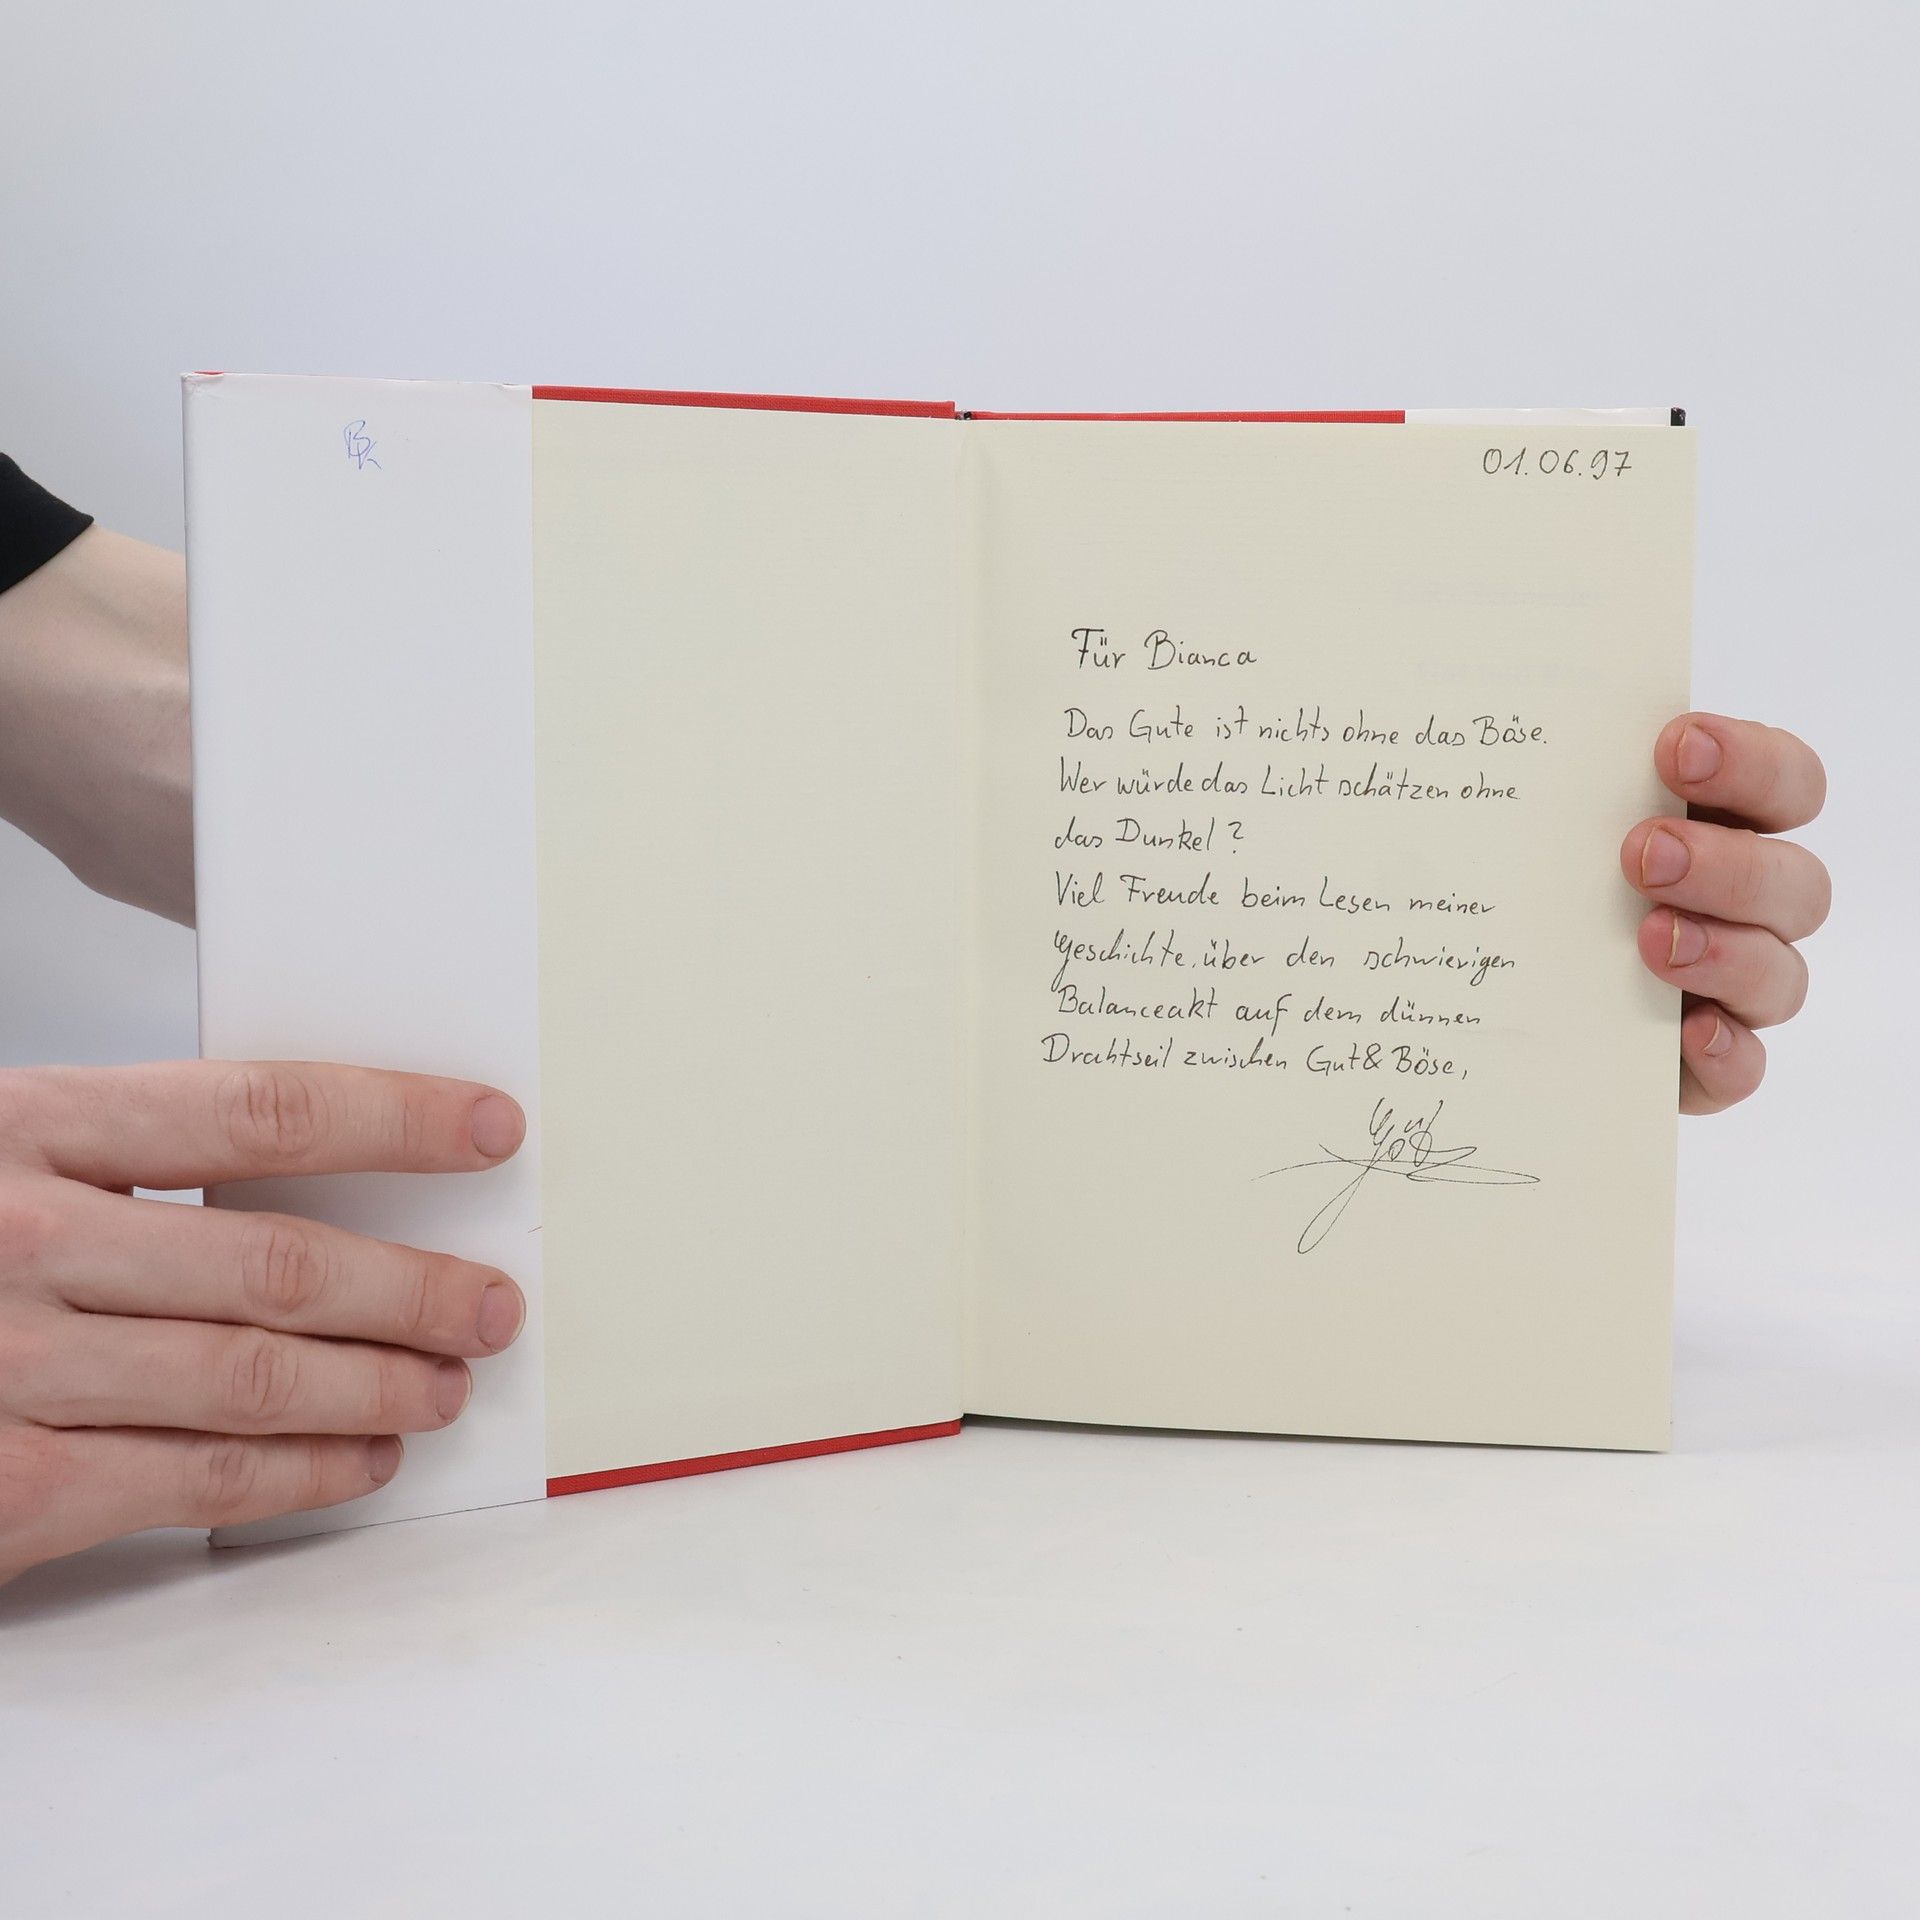 BK
01.06.97
Für Bianca
Das Gute ist nichts ohne das Böse.
Wer würde das Licht schätzen ohne
das Dunkel?
Viel Freude beim Lesen meiner
Geschichte über den schwierigen
Balanceakt auf dem dünnen
Drahtseil zwischen Gut & Böse,
Götz